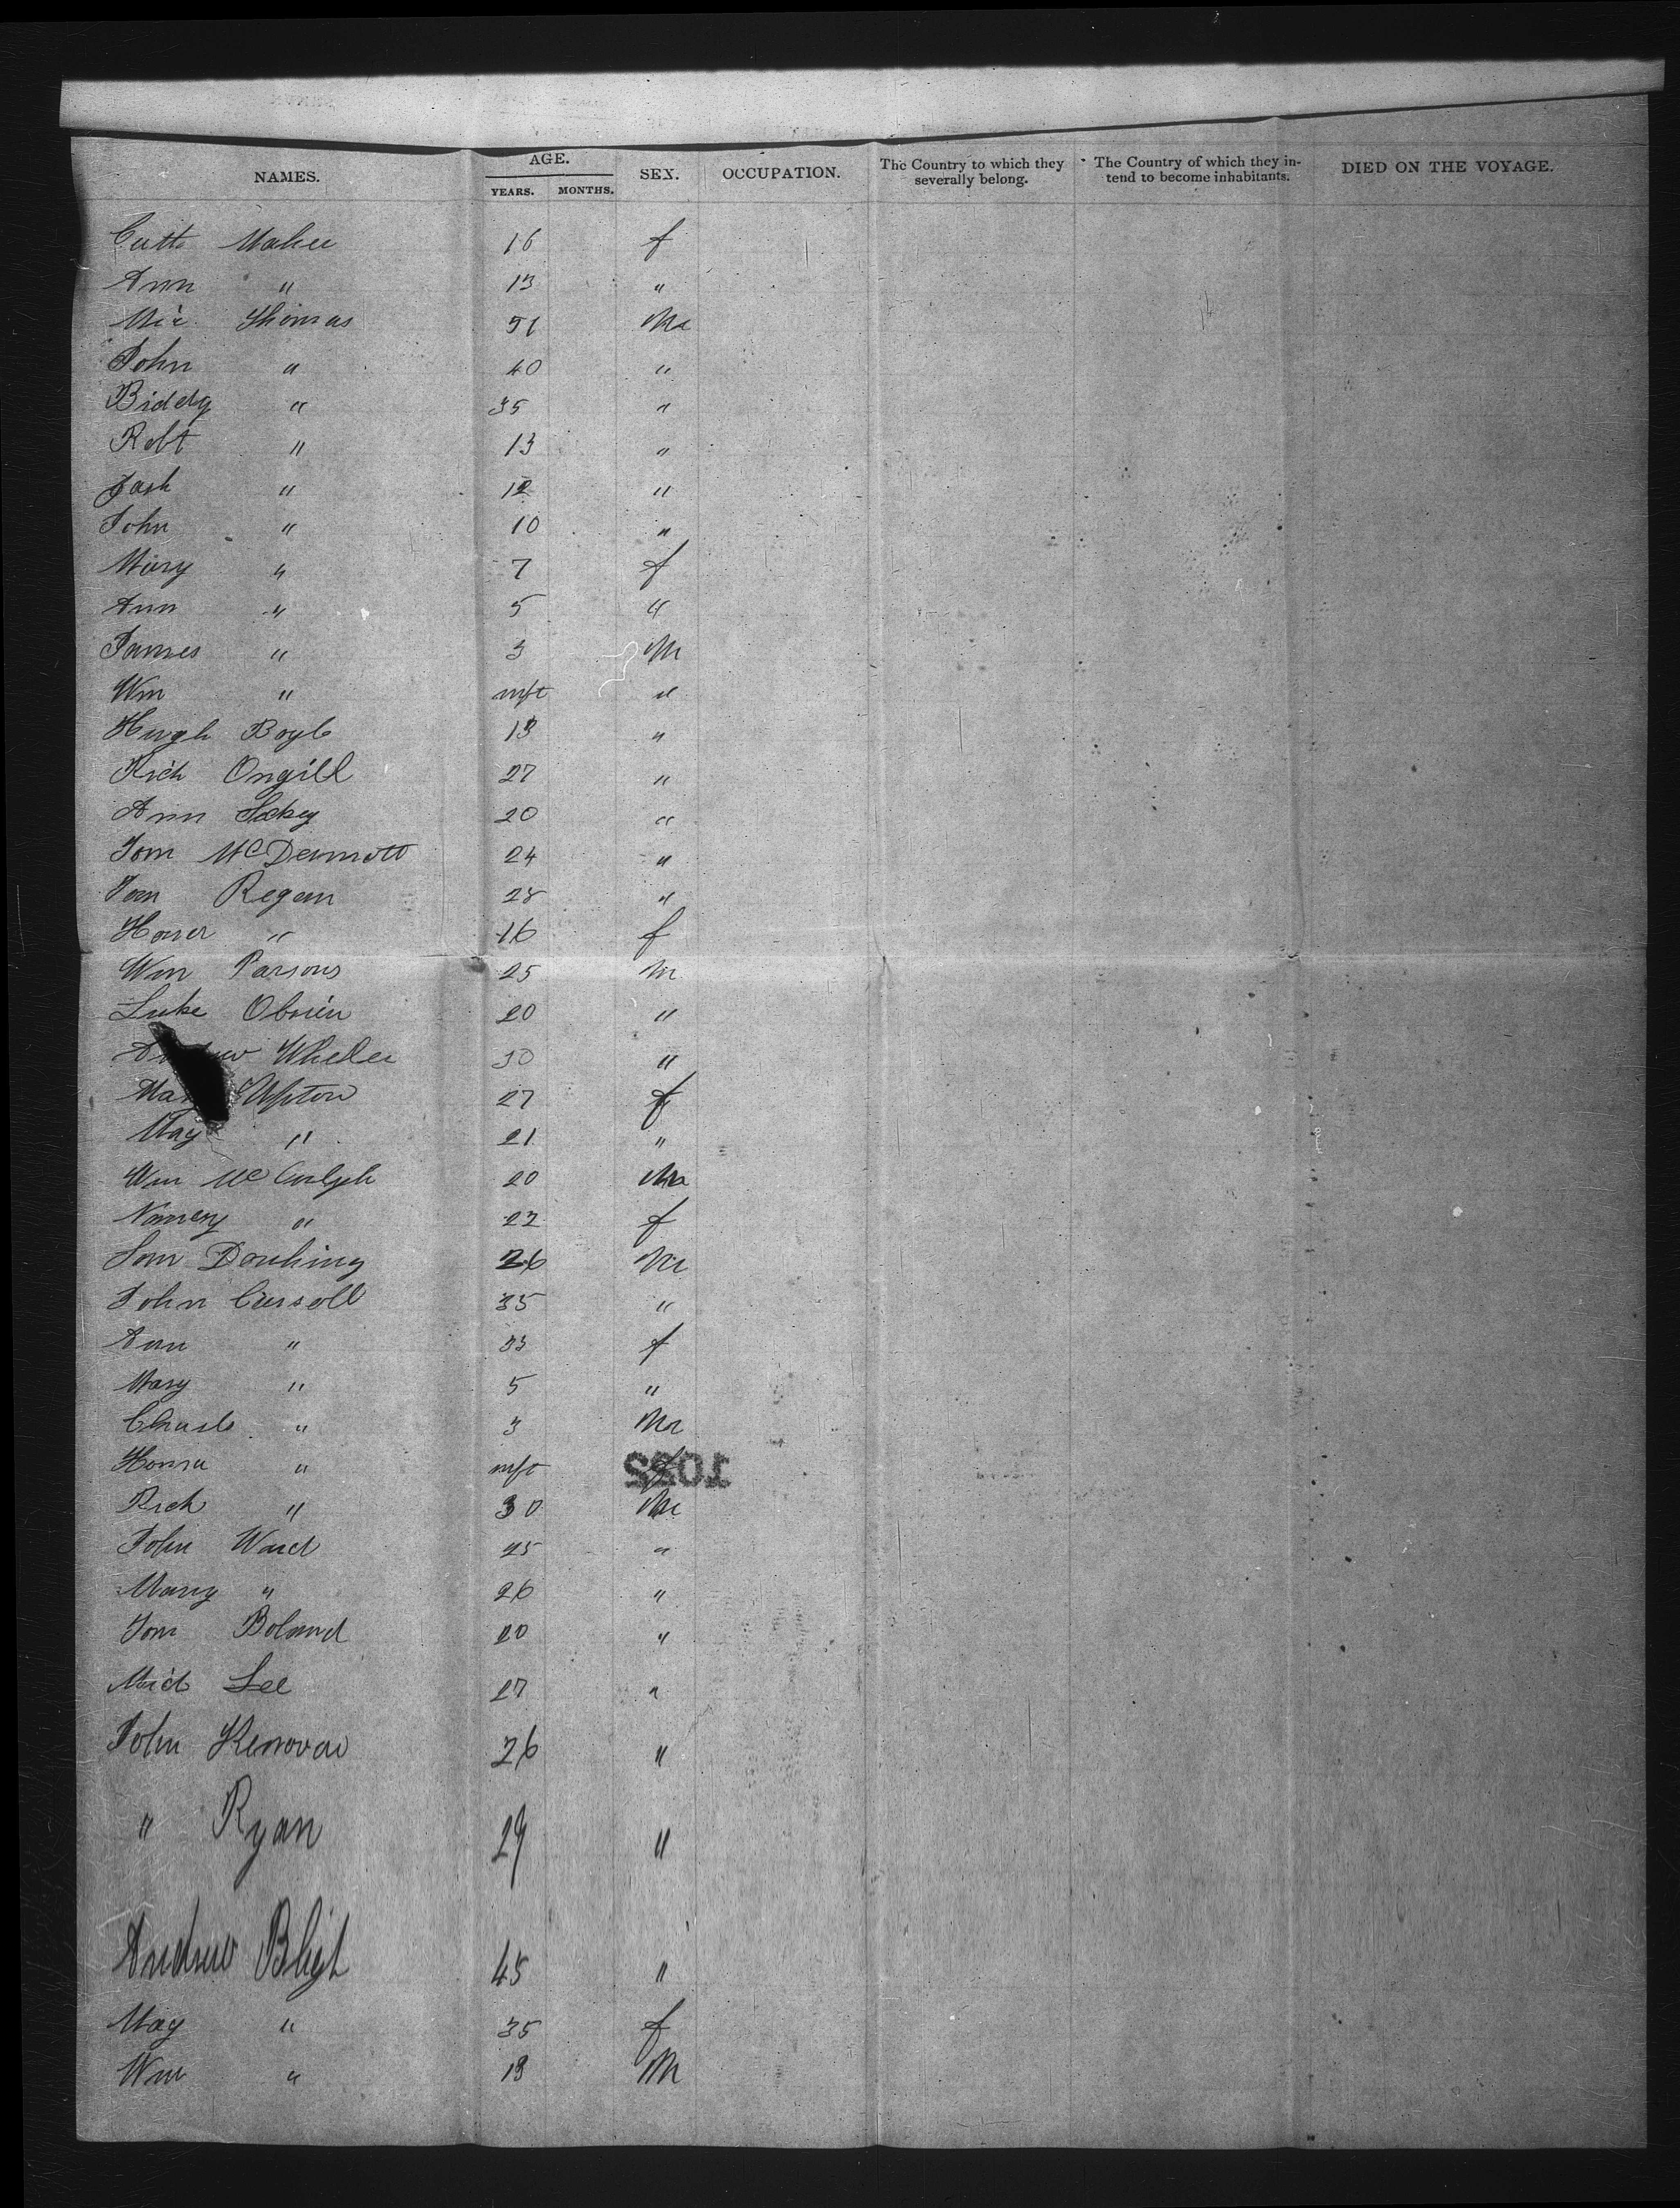 NAMES. AGE. SEX. OCCUPATION. The Country to which they severally belong. The Country of which they intend to become inhabitants. DIED ON THE VOYAGE.
YEARS. MONTHS.
Cath Maher 16 f
Ann " 13 "
Mic Thomas 51 Ma
John " 40 "
Biddy " 35 "
Robt " 13 "
" 12 "
John " 10 "
Mary " 7 f
Ann " 5 "
James " 3 M
Wm " inft "
Hugh Boyle 13 "
Rich Ongill 27 "
Ann 20 "
Tom McDermott 24 "
Tom Regan 28 "
Honor " 16 f
Wm Parsons 25 M
Luke Obrien 20 "
Andrew Wheeler 30 "
Mary Upton 27 f
May " 21 "
Wm 20 Ma
Nancy " 22 f
Tom 26 M
John Carroll 35 "
Ann " 33 f
Mary " 5 "
Charls " 3 Ma
Honra " inft f
1022
Rich " 30 M
John Ward 25 "
Mary " 26 "
Tom Boland 20 "
Mich Lee 27 "
John 26 "
" Ryan 29 "
Andrew Bligh 45 "
May " 35 f
Wm " 13 M